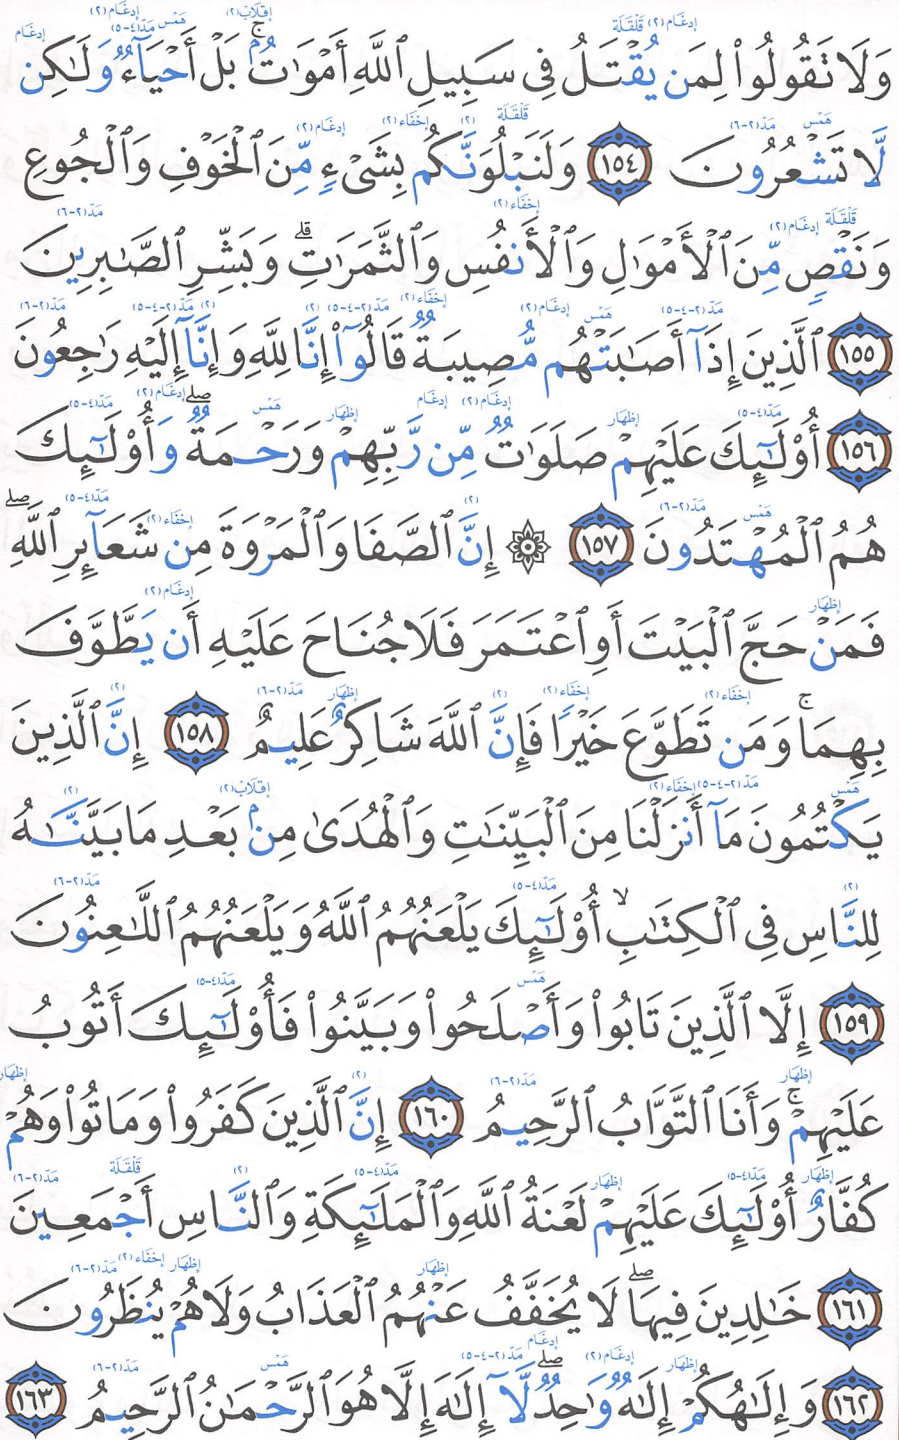 وَلَا تَقُولُوا۟ لِمَن يُقْتَلُ فِى سَبِيلِ ٱللَّهِ أَمْوَٰتٌۢ ۚ بَلْ أَحْيَآءٌ وَلَٰكِن
لَّا تَشْعُرُونَ ١٥٤ وَلَنَبْلُوَنَّكُم بِشَىْءٍ مِّنَ ٱلْخَوْفِ وَٱلْجُوعِ
وَنَقْصٍ مِّنَ ٱلْأَمْوَٰلِ وَٱلْأَنفُسِ وَٱلثَّمَرَٰتِ ۗ وَبَشِّرِ ٱلصَّٰبِرِينَ
١٥٥ ٱلَّذِينَ إِذَآ أَصَٰبَتْهُم مُّصِيبَةٌ قَالُوٓا۟ إِنَّا لِلَّهِ وَإِنَّآ إِلَيْهِ رَٰجِعُونَ
١٥٦ أُو۟لَٰٓئِكَ عَلَيْهِمْ صَلَوَٰتٌ مِّن رَّبِّهِمْ وَرَحْمَةٌ ۖ وَأُو۟لَٰٓئِكَ
هُمُ ٱلْمُهْتَدُونَ ١٥٧ ۞ إِنَّ ٱلصَّفَا وَٱلْمَرْوَةَ مِن شَعَآئِرِ ٱللَّهِ ۖ
فَمَنْ حَجَّ ٱلْبَيْتَ أَوِ ٱعْتَمَرَ فَلَا جُنَاحَ عَلَيْهِ أَن يَطَّوَّفَ
بِهِمَا ۚ وَمَن تَطَوَّعَ خَيْرًا فَإِنَّ ٱللَّهَ شَاكِرٌ عَلِيمٌ ١٥٨ إِنَّ ٱلَّذِينَ
يَكْتُمُونَ مَآ أَنزَلْنَا مِنَ ٱلْبَيِّنَٰتِ وَٱلْهُدَىٰ مِنۢ بَعْدِ مَا بَيَّنَّٰهُ
لِلنَّاسِ فِى ٱلْكِتَٰبِ ۙ أُو۟لَٰٓئِكَ يَلْعَنُهُمُ ٱللَّهُ وَيَلْعَنُهُمُ ٱللَّٰعِنُونَ
١٥٩ إِلَّا ٱلَّذِينَ تَابُوا۟ وَأَصْلَحُوا۟ وَبَيَّنُوا۟ فَأُو۟لَٰٓئِكَ أَتُوبُ
عَلَيْهِمْ ۚ وَأَنَا ٱلتَّوَّابُ ٱلرَّحِيمُ ١٦٠ إِنَّ ٱلَّذِينَ كَفَرُوا۟ وَمَاتُوا۟ وَهُمْ
كُفَّارٌ أُو۟لَٰٓئِكَ عَلَيْهِمْ لَعْنَةُ ٱللَّهِ وَٱلْمَلَٰٓئِكَةِ وَٱلنَّاسِ أَجْمَعِينَ
١٦١ خَٰلِدِينَ فِيهَا ۖ لَا يُخَفَّفُ عَنْهُمُ ٱلْعَذَابُ وَلَا هُمْ يُنظَرُونَ
١٦٢ وَإِلَٰهُكُمْ إِلَٰهٌ وَٰحِدٌ ۖ لَّآ إِلَٰهَ إِلَّا هُوَ ٱلرَّحْمَٰنُ ٱلرَّحِيمُ ١٦٣